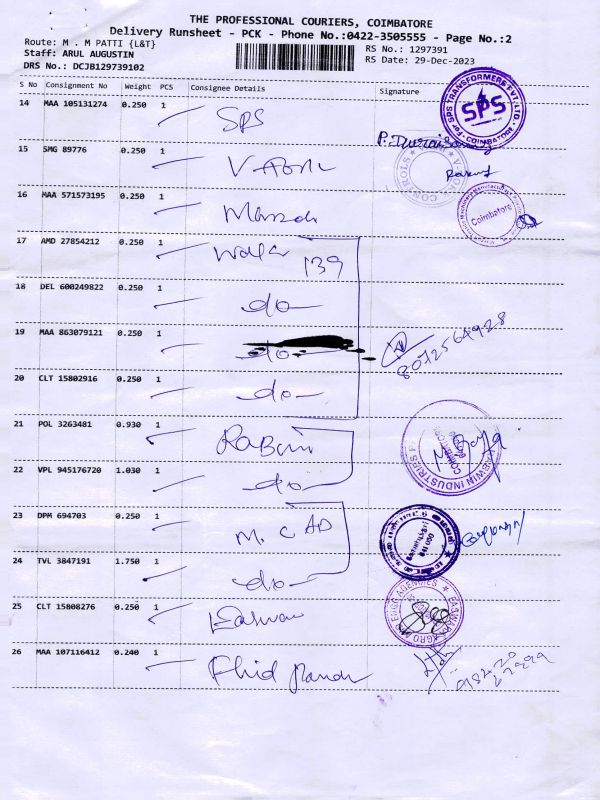 THE PROFESSIONAL COURIERS, COIMBATORE
Delivery Runsheet - PCK - Phone No.:0422-3505555 - Page No.:2
Route: M . M PATTI {L&T}
RS No.: 1297391
Staff: ARUL AUGUSTIN
RS Date: 29-Dec-2023
DRS No.: DCJB129739102
S No Consignment No Weight PCS Consignee Details Signature
14 MAA 105131274 0.250 1 SPS
SPS TRANSFORMERS PVT. LTD. SPS COIMBATORE
15 SMG 89776 0.250 1
16 MAA 571573195 0.250 1
Coimbatore
17 AMD 27854212 0.250 1 139
18 DEL 600249822 0.250 1 do
19 MAA 863079121 0.250 1 do
8072564928
20 CLT 15802916 0.250 1 do
21 POL 3263481 0.930 1
INDUSTRIES
22 VPL 945176720 1.030 1 do
23 DPM 694703 0.250 1
24 TVL 3847191 1.750 1 do
25 CLT 15808276 0.250 1
26 MAA 107116412 0.240 1